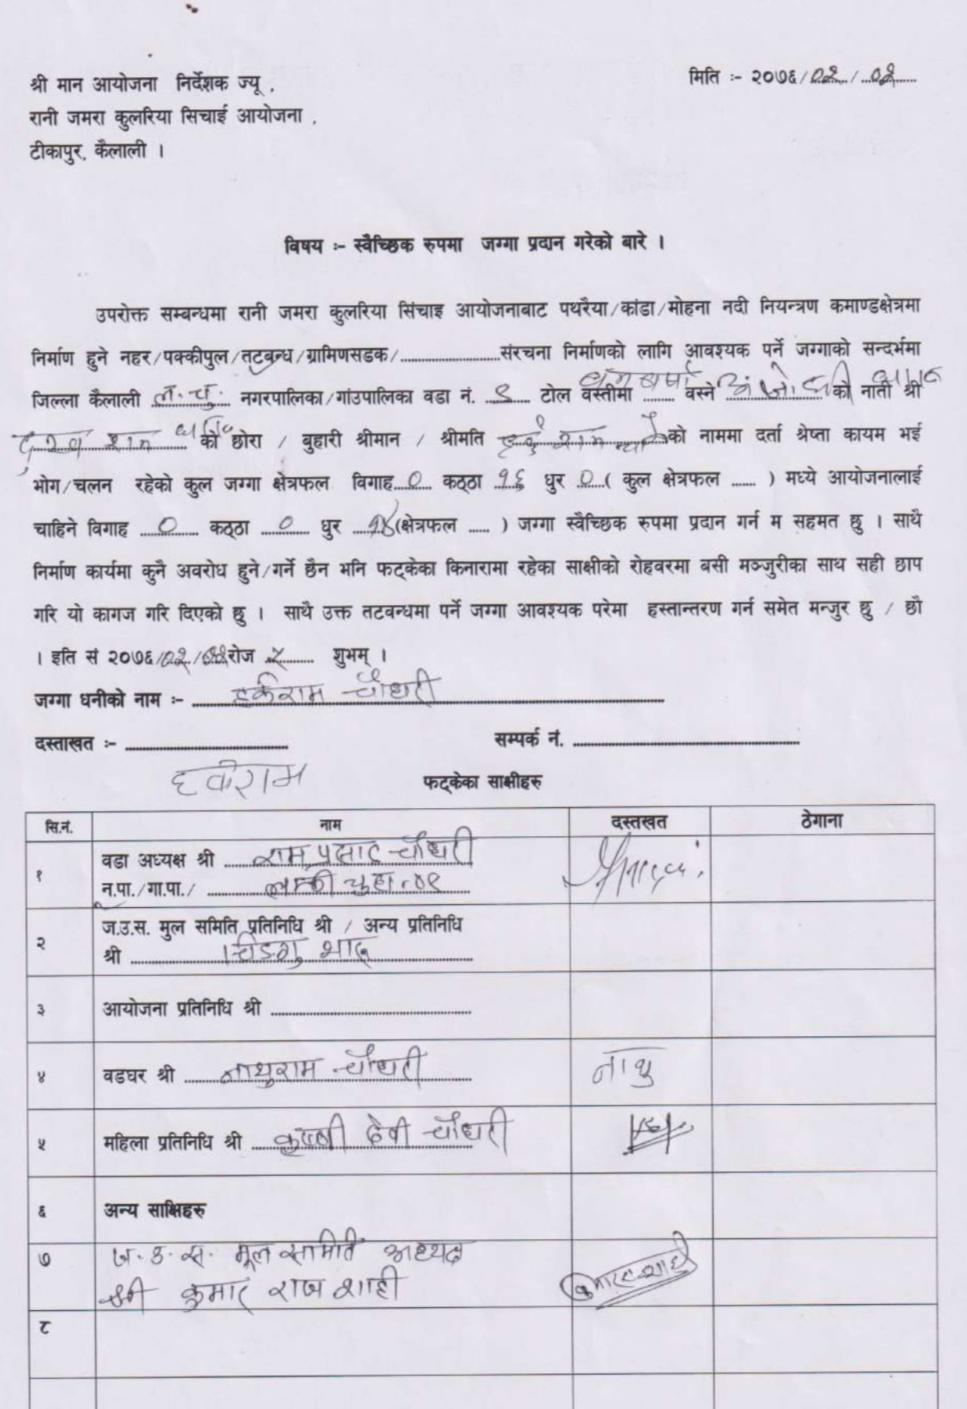 श्री मान आयोजना निर्देशक ज्यू ,
मिति :- २०७६/०२/०२
रानी जमरा कुलरिया सिचाई आयोजना ,
टीकापुर, कैलाली ।
विषय :- स्वैच्छिक रुपमा जग्गा प्रदान गरेको बारे ।
उपरोक्त सम्बन्धमा रानी जमरा कुलरिया सिंचाइ आयोजनाबाट पथरैया/कांडा/मोहना नदी नियन्त्रण कमाण्डक्षेत्रमा
निर्माण हुने नहर/पक्कीपुल/तटबन्ध/ग्रामिणसडक/....................संरचना निर्माणको लागि आवश्यक पर्ने जग्गाको सन्दर्भमा
जिल्ला कैलाली ल.चु. नगरपालिका/गांउपालिका वडा नं. ९ टोल वस्तीमा ...... बस्ने को नाती श्री
को छोरा / बुहारी श्रीमान / श्रीमति को नाममा दर्ता श्रेष्ता कायम भई
भोग/चलन रहेको कुल जग्गा क्षेत्रफल विगाह ० कठ्ठा १६ धुर ० ( कुल क्षेत्रफल ...... ) मध्ये आयोजनालाई
चाहिने विगाह ० कठ्ठा ० धुर (क्षेत्रफल ...... ) जग्गा स्वैच्छिक रुपमा प्रदान गर्न म सहमत छु । साथै
निर्माण कार्यमा कुनै अवरोध हुने/गर्ने छैन भनि फट्केका किनारामा रहेका साक्षीको रोहवरमा बसी मञ्जुरीका साथ सही छाप
गरि यो कागज गरि दिएको छु । साथै उक्त तटवन्धमा पर्ने जग्गा आवश्यक परेमा हस्तान्तरण गर्न समेत मन्जुर छु / छौ
। इति सं २०७६/०२/ रोज शुभम् ।
जग्गा धनीको नाम :- हर्कराम चौधरी
दस्ताखत :- ........................ सम्पर्क नं. ................................
हर्कराम
फट्केका साक्षीहरु
सि.नं. नाम दस्तखत ठेगाना
१ वडा अध्यक्ष श्री राम प्रसाद चौधरी
न.पा./गा.पा./ लम्की चुहा-०९
२ ज.उ.स. मुल समिति प्रतिनिधि श्री / अन्य प्रतिनिधि
श्री
३ आयोजना प्रतिनिधि श्री ........................
४ वडघर श्री नाथुराम चौधरी नाथु
५ महिला प्रतिनिधि श्री देवी चौधरी
६ अन्य साक्षिहरु
७ ज.उ.स. मूल समिति अध्यक्ष
श्री कुमार राज शाही
८